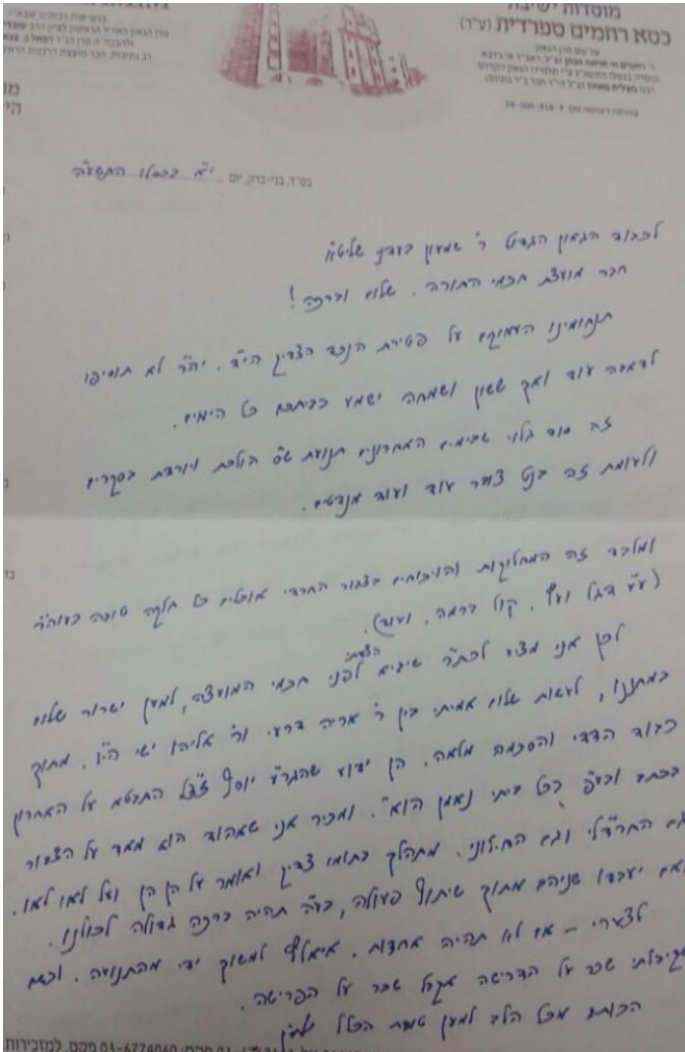 מוסדות ישיבת
כסא רחמים ספרדית (ע"ר)
בס"ד, בני-ברק, יום י"ח בכסלו התשע"ה
לכבוד הגאון הגדול ר' שמעון בעדני שליט"א
חבר מועצת חכמי התורה. שלום וברכה!
תנחומינו העמוקים על פטירת הנכד הצדיק הי"ד. יה"ר לא תוסיפו
לדאבה עוד ואך ששון ושמחה ישמע בביתכם כל הימים.
זה סוד גלוי שבימים האחרונים תנועת ש"ס הולכת ויורדת בסקרים
ולעומת זה בנט צובר עוד ועוד מנדטים.
ומלבד זה המחלוקות והויכוחים בציבור החרדי אוכלים כל חלקה טובה בעוה"ר
(ע"ע דגל ועץ, קול ברמה, ועוד).
לכן אני מציע לכת"ר שיביא הצעתי לפני חכמי המועצה, למען ישרור שלום
במחננו, לעשות שלום אמיתי בין ר' אריה דרעי ור' אליהו ישי הי"ו. מתוך
כבוד הדדי והסכמה מלאה. הן ידוע שהגר"ע יוסף זצ"ל התבטא על האחרון
בכתב ובע"פ "בכל ביתי נאמן הוא". ומכיר אני שאהוד הוא מאד על הציבור
גם החרד"לי וגם החילוני. מתהלך בתומו צדיק ואומר על הן הן ועל לאו לאו.
ואם יעבדו שניהם מתוך שיתוף פעולה, בע"ה תהיה ברכה גדולה לכולנו.
לצערי – אם לא תהיה אחדות. איאלץ למשוך ידי מהתנועה. וכשם
שקיבלתי שכר על הדרישה אקבל שכר על הפרישה.
הכותב מכל הלב למען טובת הכלל
03-6774060 פקס. למזכירות